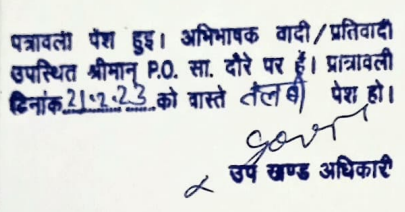 पत्रावली पेश हुइ। अभिभाषक वादी/प्रतिवादी
उपस्थित श्रीमान् P.O. सा. दौरे पर हैं। प्रात्रावली
दिनांक 21.2.23 को वास्ते तलबी पेश हो।
उप खण्ड अधिकारी